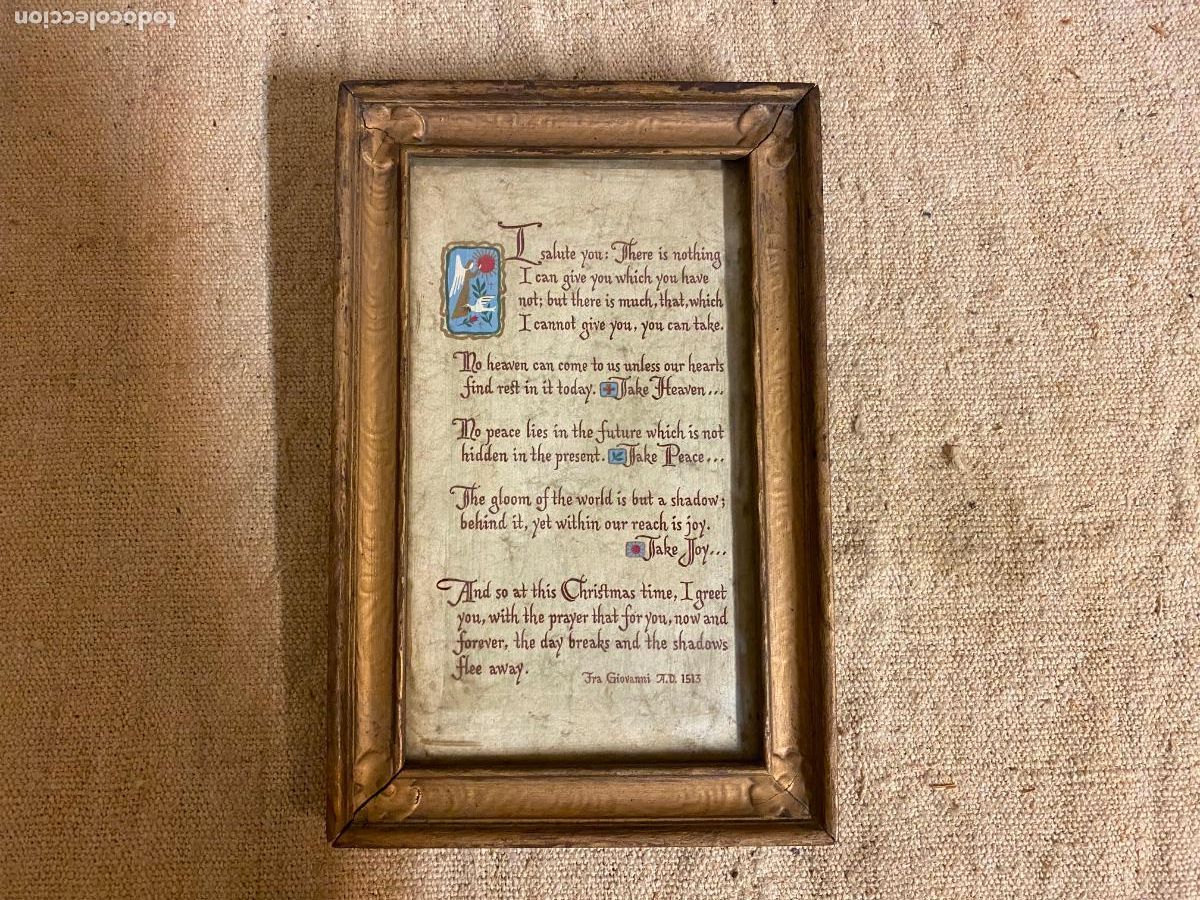 todocoleccion
I salute you: There is nothing
I can give you which you have
not; but there is much, that, which
I cannot give you, you can take.
No heaven can come to us unless our hearts
find rest in it today. Take Heaven...
No peace lies in the future which is not
hidden in the present. Take Peace...
The gloom of the world is but a shadow;
behind it, yet within our reach is joy.
Take Joy...
And so at this Christmas time, I greet
you, with the prayer that for you, now and
forever, the day breaks and the shadows
flee away.
Fra Giovanni A.D. 1513